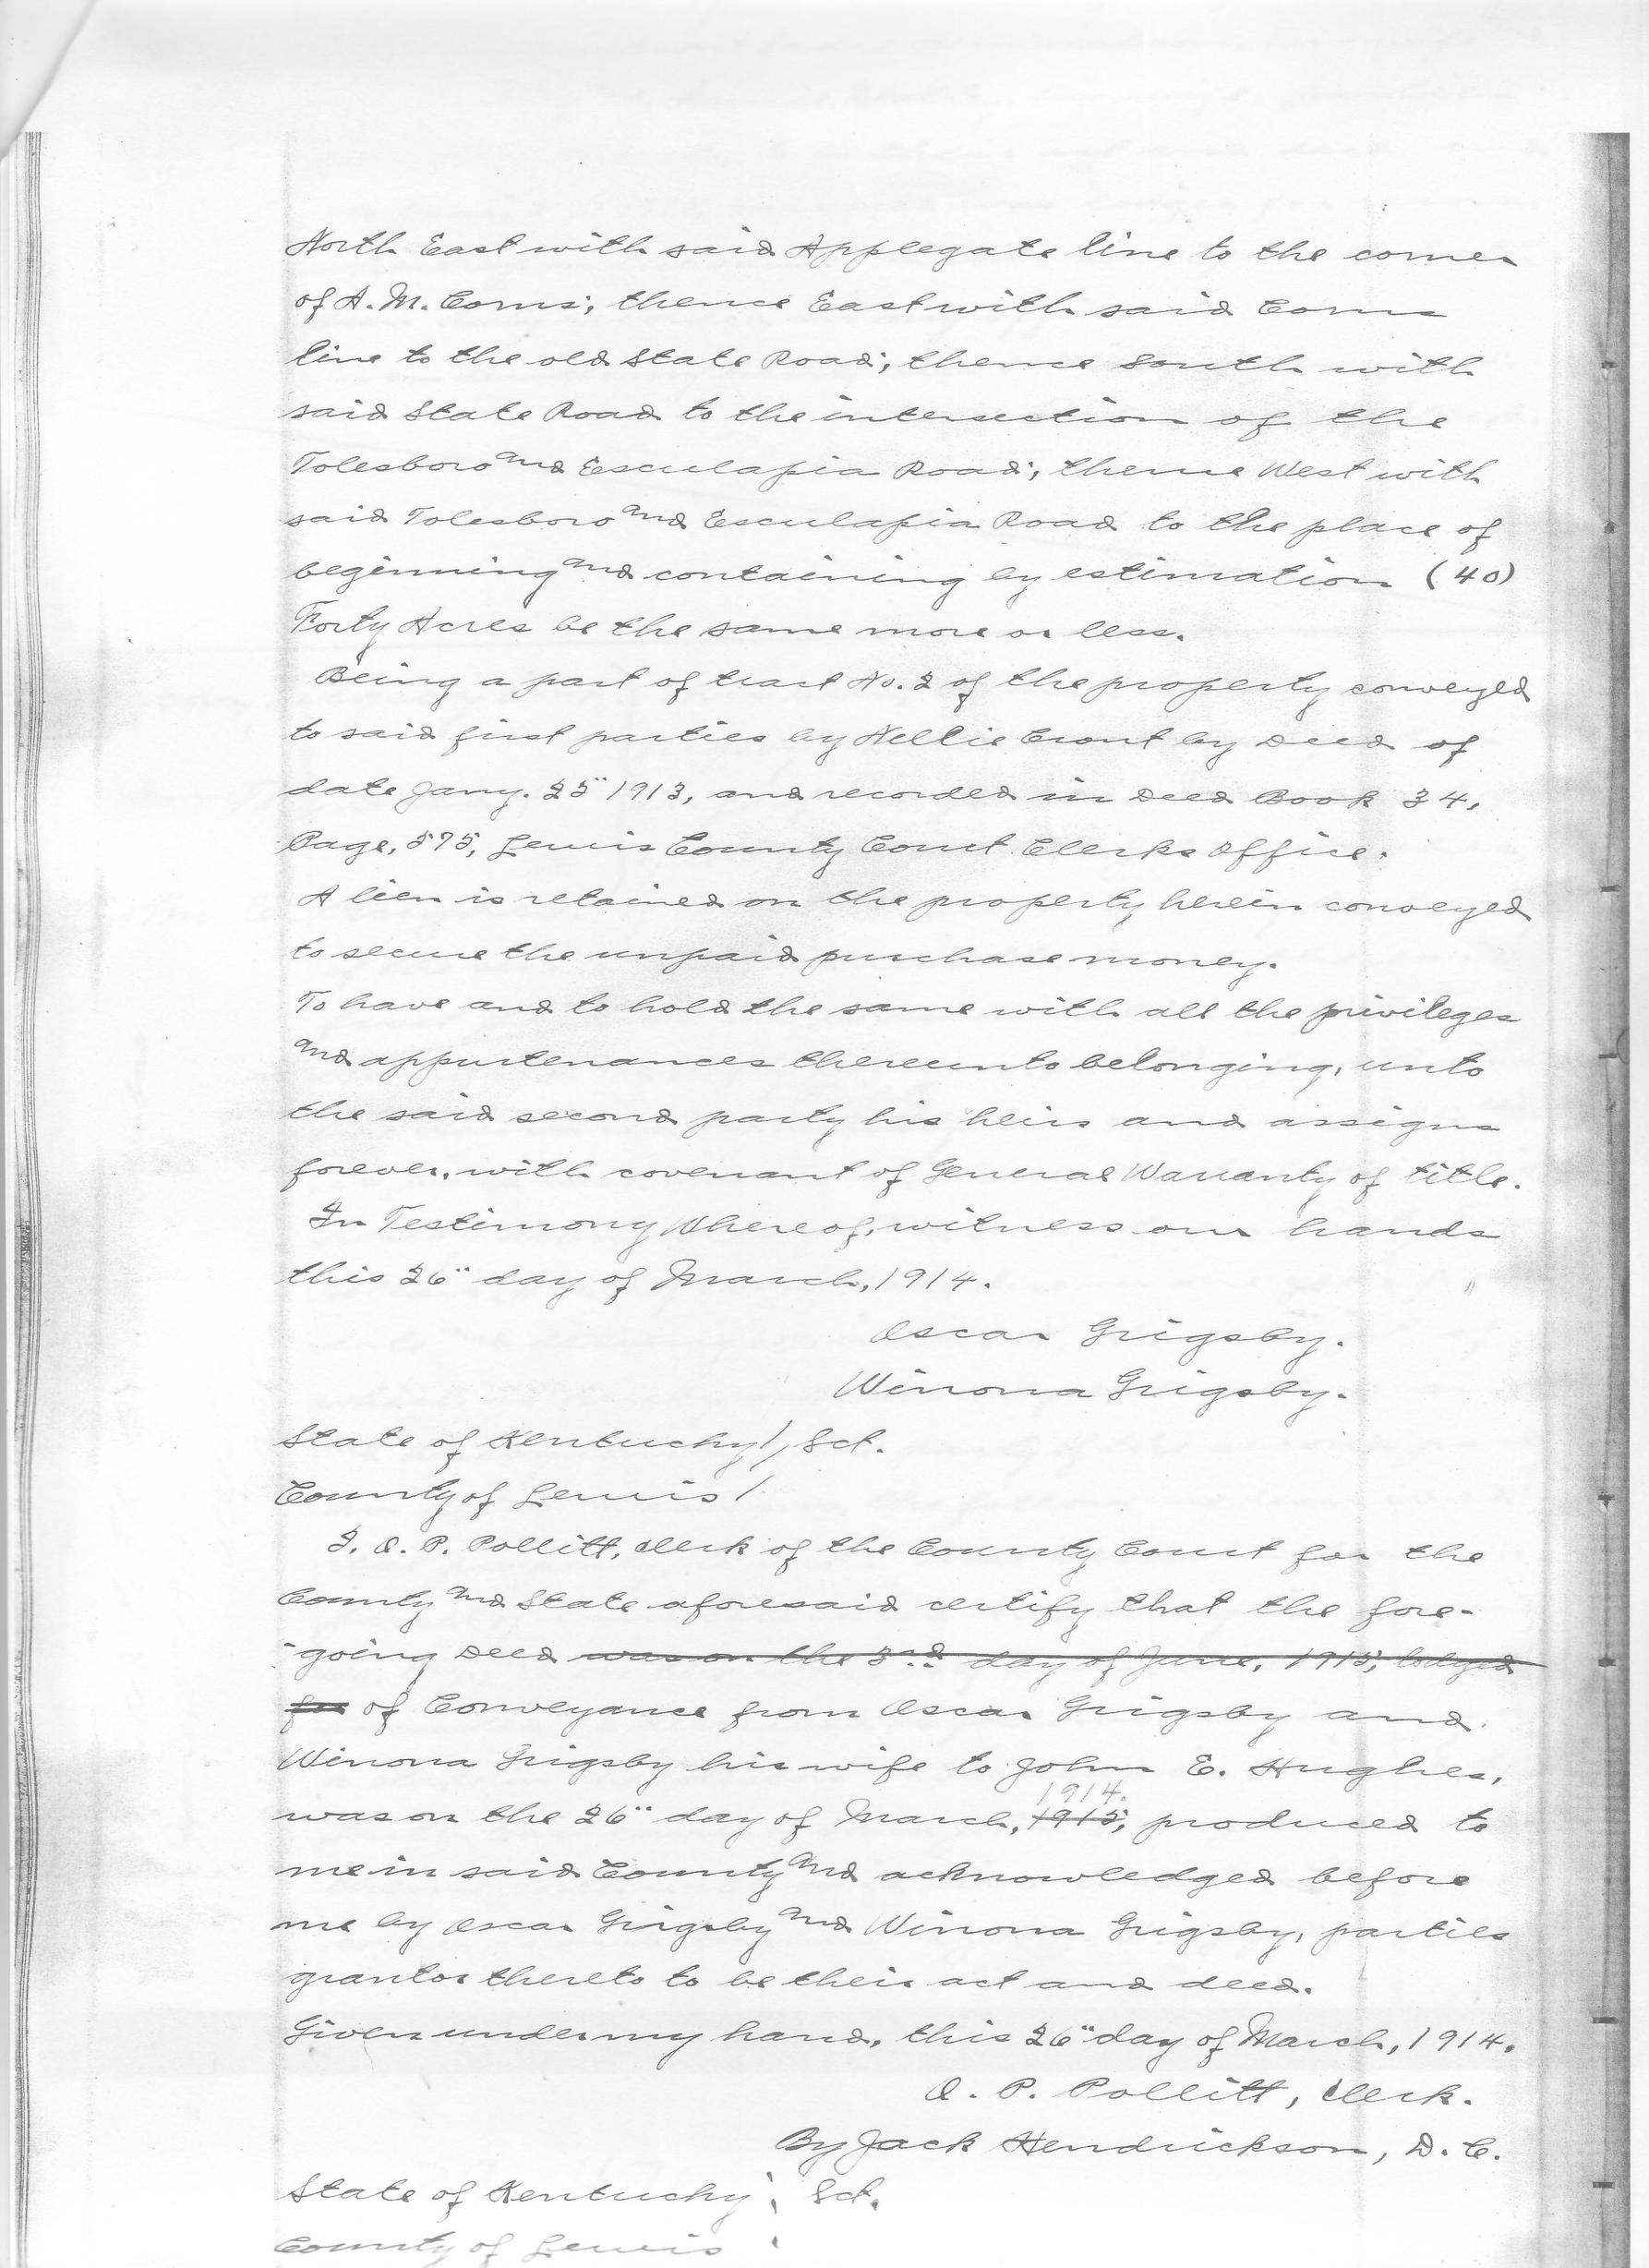 North East with said Applegate line to the corner
of A. M. Corns; thence East with said Corns
line to the old State Road; thence South with
said State Road to the intersection of the
Tolesboro and Esculapia Road; thence West with
said Tolesboro and Esculapia Road to the place of
beginning and containing by estimation (40)
Forty Acres be the same more or less.
Being a part of tract No. 2 of the property conveyed
to said first parties by Nellie Crout by Deed of
date Jany. 25" 1913, and recorded in Deed Book 34,
Page, 575, Lewis County Court Clerks Office.
A lien is retained on the property herein conveyed
to secure the unpaid purchase money.
To have and to hold the same with all the privileges
and appurtenances thereunto belonging, unto
the said second party his heirs and assigns
forever, with covenant of General Warranty of title.
In Testimony Whereof, witness our hands
this 26" day of March, 1914.
Oscar Grigsby.
Winona Grigsby.
State of Kentucky ) Sct.
County of Lewis )
I, O. P. Pollitt, Clerk of the County Court for the
County and State aforesaid certify that the fore-
-going Deed was on the 3rd day of June, 1915, lodged
for of Conveyance from Oscar Grigsby and
Winona Grigsby his wife to John E. Hughes,
1914.
was on the 26" day of March, 1915, produced to
me in said County and acknowledged before
me by Oscar Grigsby and Winona Grigsby, parties
grantor thereto to be their act and deed.
Given under my hand, this 26" day of March, 1914.
O. P. Pollitt, Clerk.
By Jack Hendrickson, D. C.
State of Kentucky : Sct.
County of Lewis :